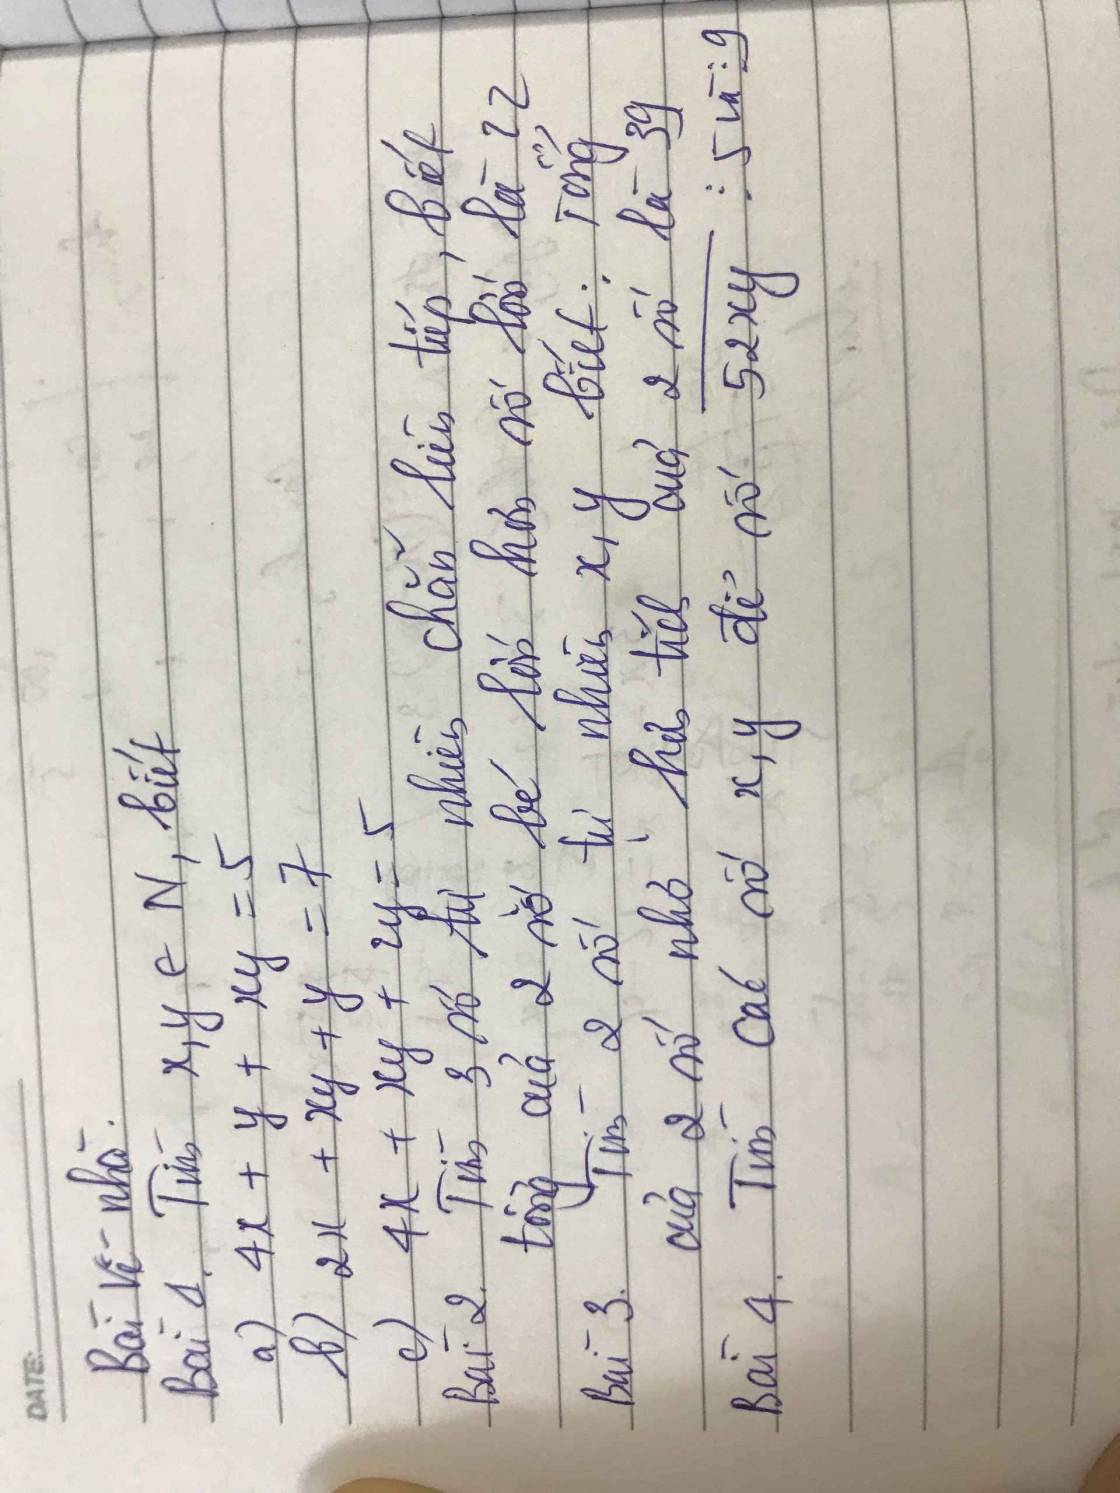 DATE:
Bài về nhà.
Bài 1. Tìm x, y ∈ N, biết
a) 4x + y + xy = 5
b) 2x + xy + y = 7
c) 4x + xy + 2y = 5
Bài 2. Tìm 3 số tự nhiên chẵn liên tiếp, biết
tổng của 2 số bé lớn hơn số lớn là 22
Bài 3. Tìm 2 số tự nhiên x, y biết: Tổng
của 2 số nhỏ hơn tích của 2 số là 39
Bài 4. Tìm các số x, y để số 52xy ⋮ 5 và ⋮ 9